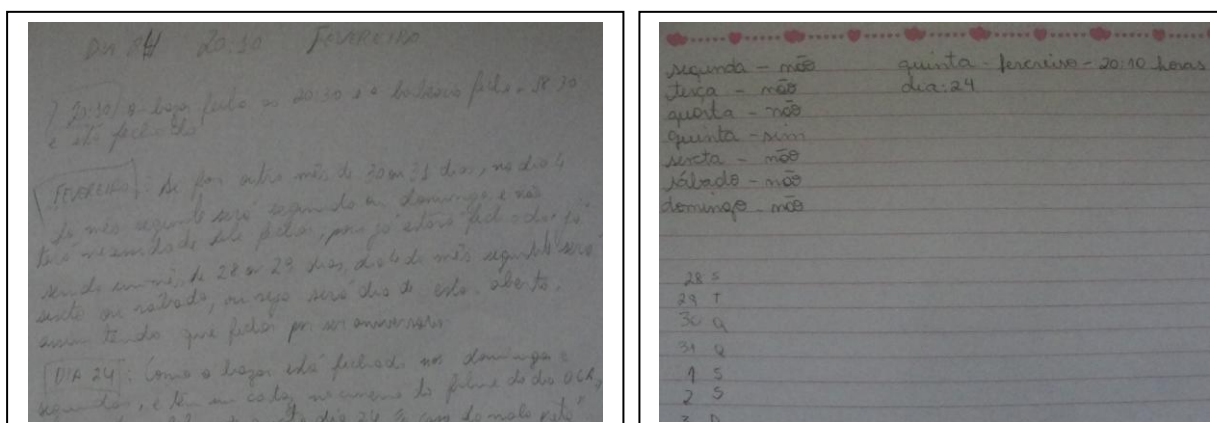 Dia 24 20:10 FEVEREIRO
20:10 o bazar fecha as 20:30 e a fecha 18:30
e está fechado
FEVEREIRO: Se for outro mês de 30 ou 31 dias, no dia 4
do mês seguinte será segunda ou domingo e não
terá necessidade de fechar, pois já estará fechado. já
sendo um mês de 28 ou 29 dias, dia 4 do mês seguinte será
sexta ou sábado, ou seja será dia de estar aberto,
assim tendo que fechar por ser aniversário
DIA 24: Como o bazar está fechado nos domingos e
segundas, e têm um cartaz no cinema do filme do dia
dia 24
segunda - não
terça - não
quarta - não
quinta - sim
sexta - não
sábado - não
domingo - não
quinta - fevereiro - 20:10 horas
dia: 24
28 S
29 T
30 Q
31 Q
1 S
2 S
3 D